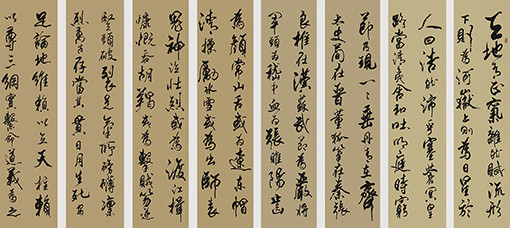 天地有正氣雜然賦流形
下則為河嶽上則為日星於
人曰浩然沛乎塞蒼冥皇
路當清夷含和吐明庭時窮
節乃現一一垂丹青在齊
太史簡在晉董狐筆在秦張
良椎在漢蘇武節為嚴將
軍頭為嵇侍中血為張睢陽齒
為顏常山舌或為遼東帽
清操勵冰雪或為出師表
鬼神泣壯烈或為渡江楫
慷慨吞胡羯或為擊賊笏逆
豎頭破裂是氣所磅礴凜
烈萬古存當其貫日月生死安
足論地維賴以立天柱賴
以尊三綱實繫命道義為之